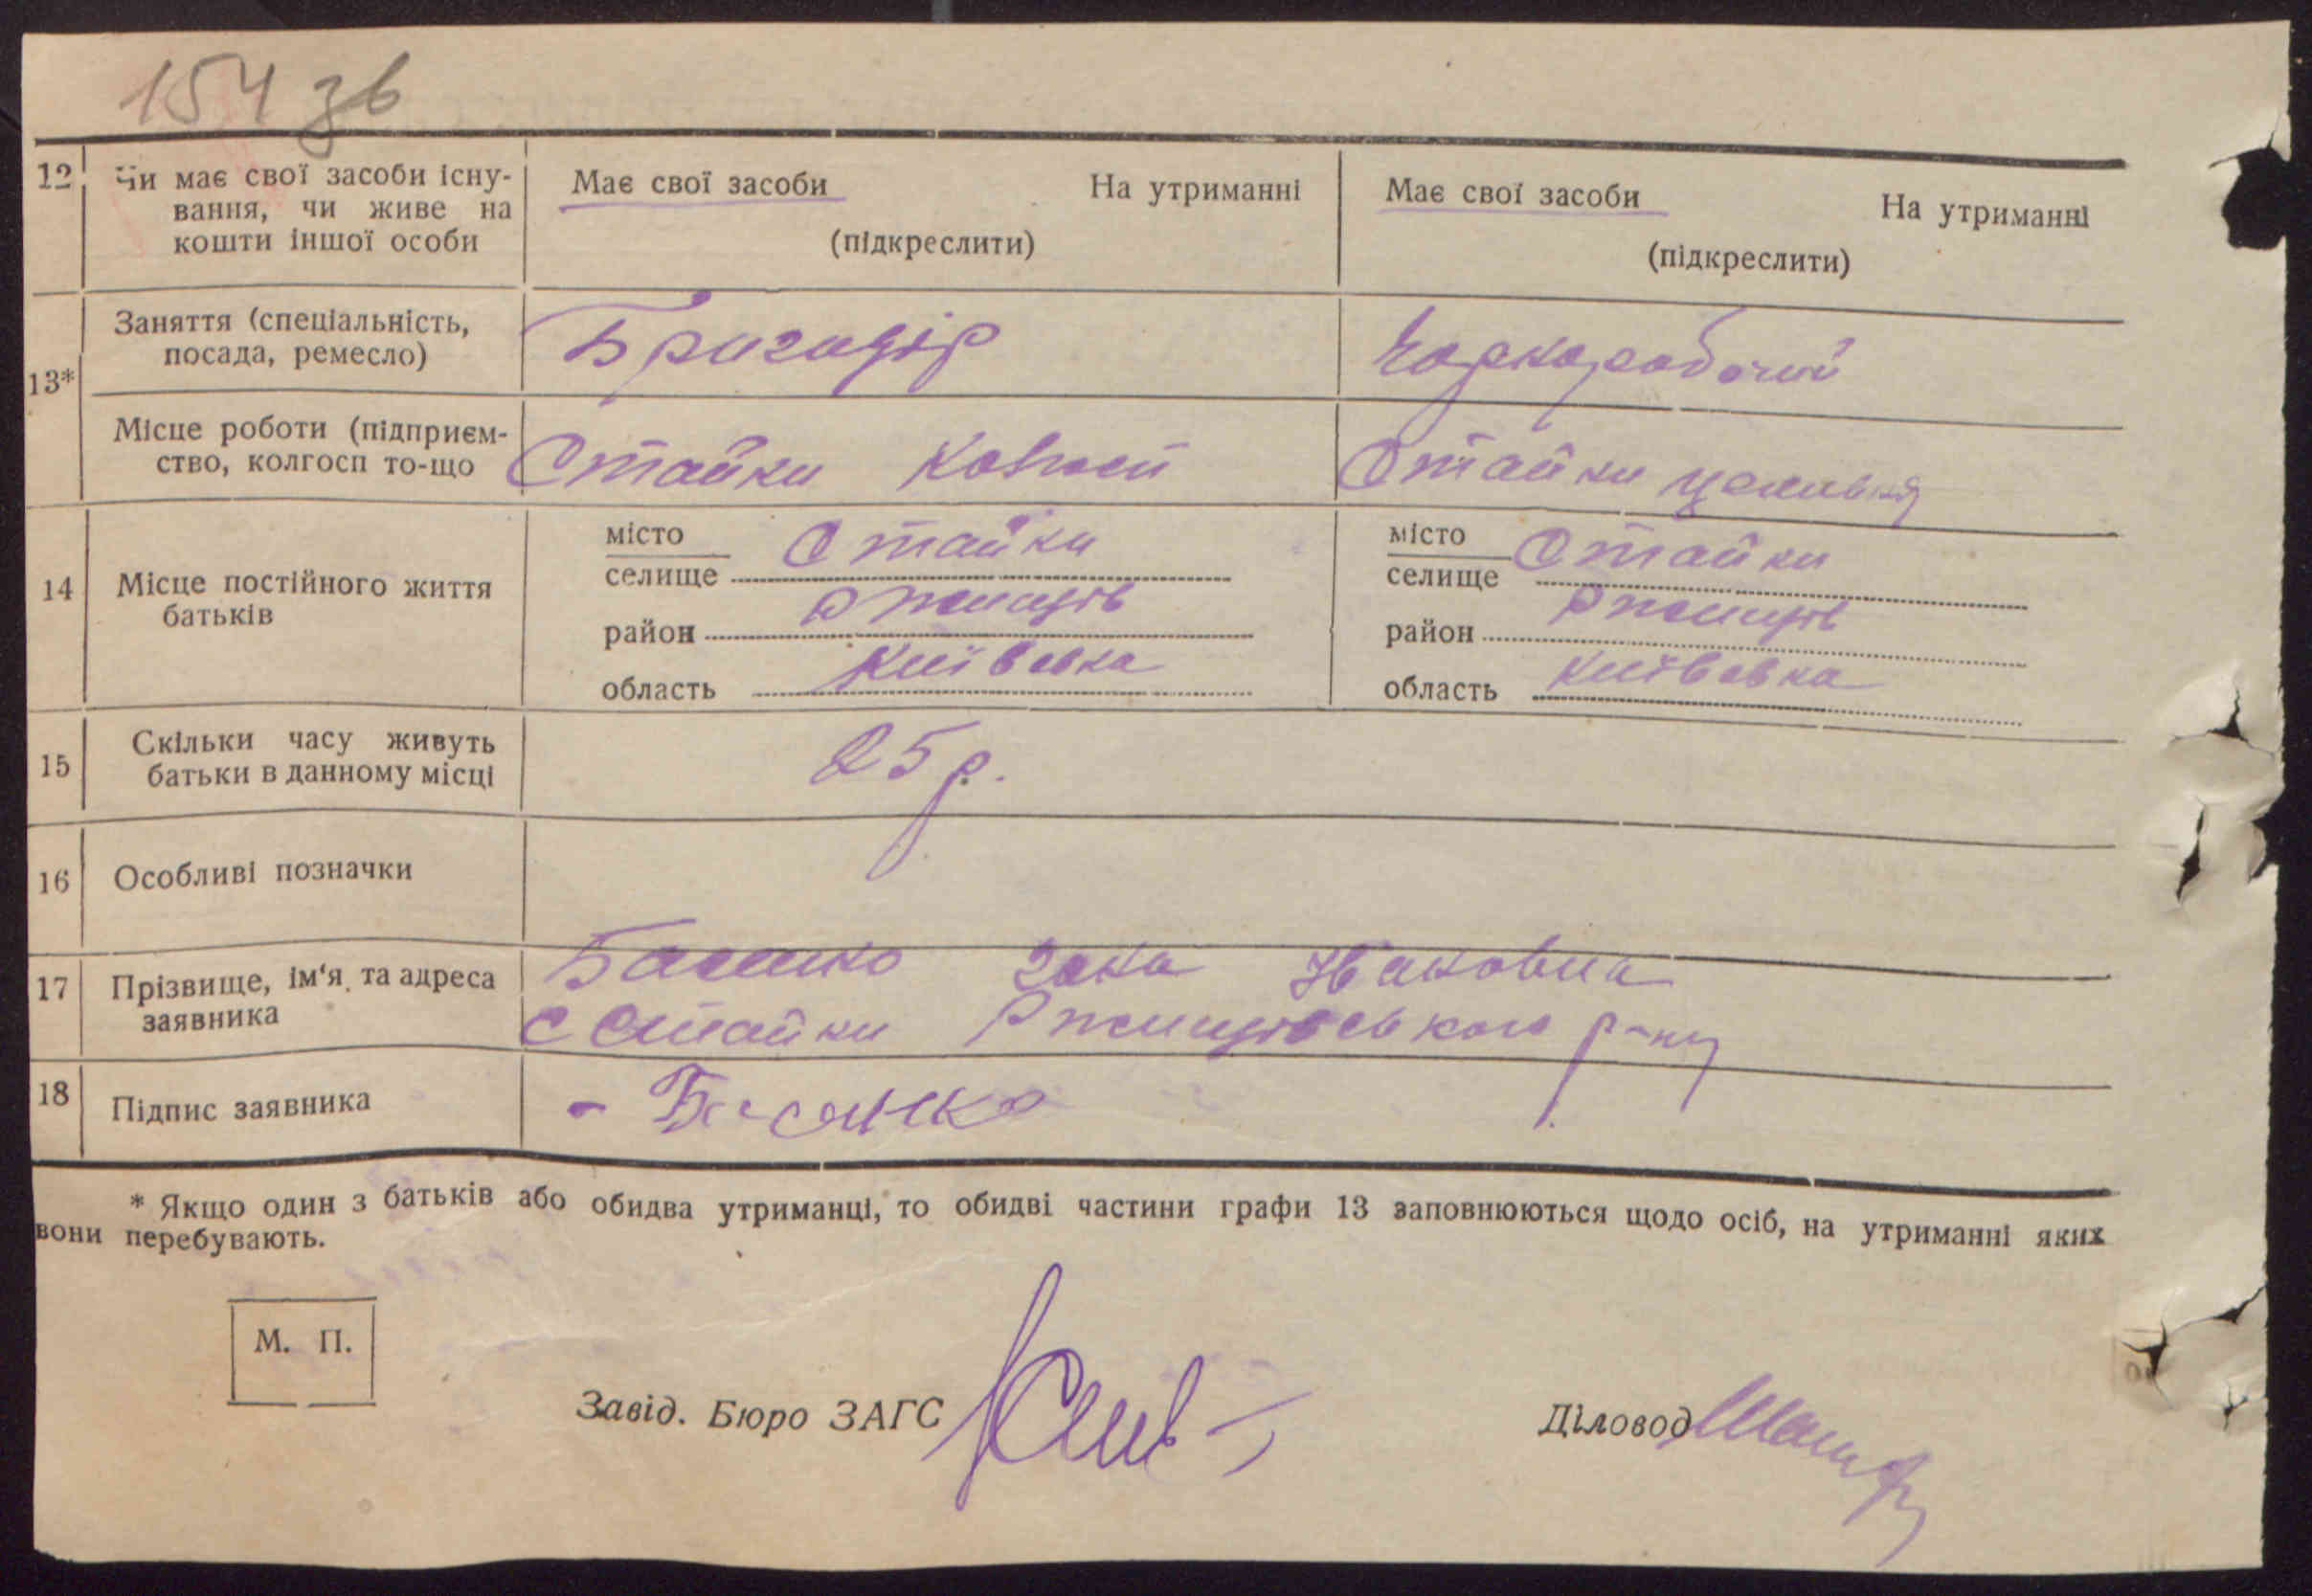 154 зв
12 Чи має свої засоби існу- Має свої засоби На утриманні Має свої засоби На утриманні
вання, чи живе на
кошти іншої особи (підкреслити) (підкреслити)
Заняття (спеціальність, Бригадір Чорноробочий
посада, ремесло)
13*
Місце роботи (підприєм- Стайки Стайки
ство, колгосп то-що
місто Стайки місто Стайки
селище селище
14 Місце постійного життя
батьків
район Ржищів район Ржищів
область Київська область Київська
15 Скільки часу живуть 25 р.
батьки в данному місці
16 Особливі позначки
17 Прізвище, ім'я та адреса Басанко
заявника с Стайки Ржищівського р-ну
18 Підпис заявника - Басанко
* Якщо один з батьків або обидва утриманці, то обидві частини графи 13 заповнюються щодо осіб, на утриманні яких
вони перебувають.
М. П.
Завід. Бюро ЗАГС Діловод